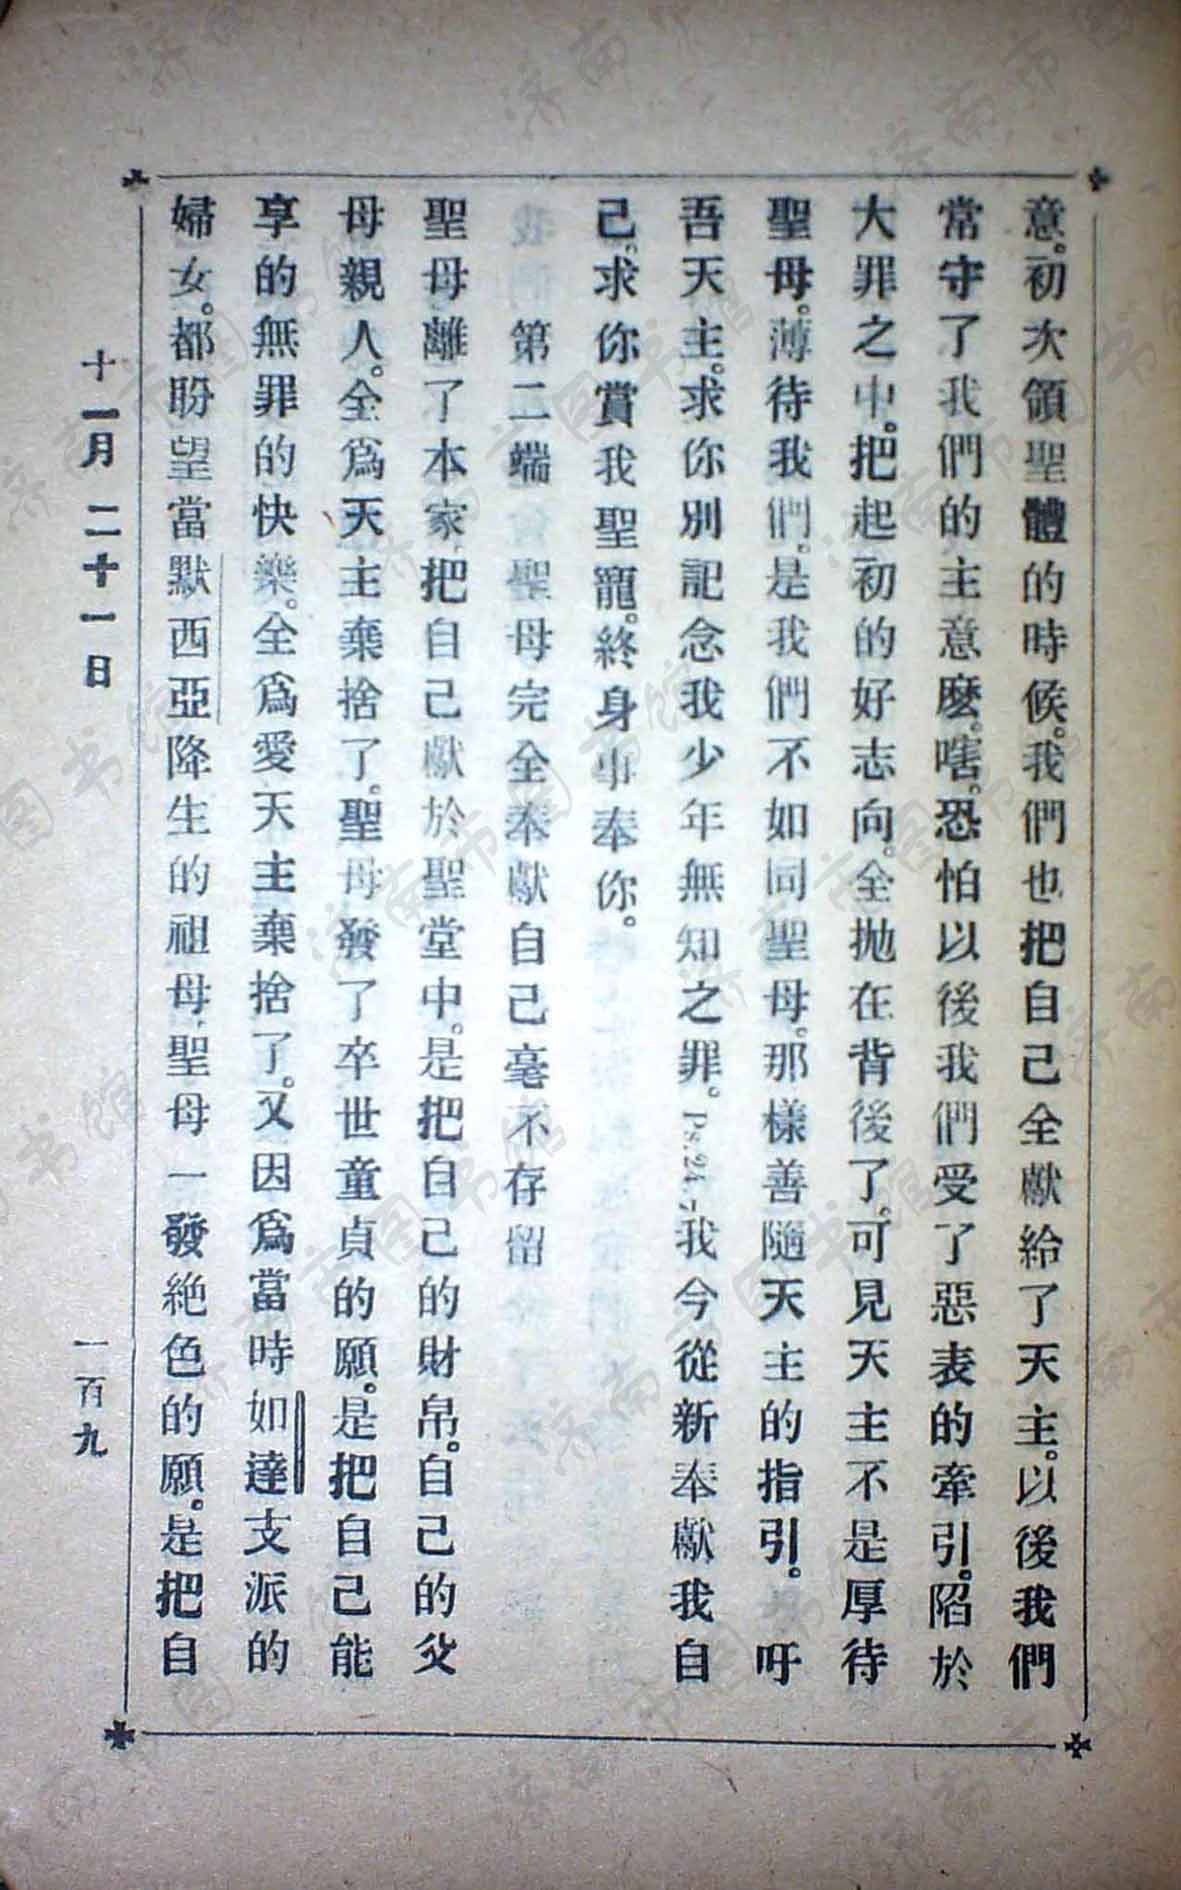 意。初次領聖體的時候。我們也把自己全獻給了天主。以後我們
常守了我們的主意麽。嗐。恐怕以後我們受了惡表的牽引。陷於
大罪之中。把起初的好志向。全拋在背後了。可見天主不是厚待
聖母。薄待我們。是我們不如同聖母。那樣善隨天主的指引。吁
吾天主。求你別記念我少年無知之罪。Ps.24.7我今從新奉獻我自
己。求你賞我聖寵。終身事奉你。
第二端 聖母完全奉獻自己毫不存留
聖母離了本家把自己獻於聖堂中。是把自己的財帛。自己的父
母親人。全爲天主棄捨了。聖母發了卒世童貞的願。是把自己能
享的無罪的快樂。全爲愛天主棄捨了。又因爲當時如達支派的
婦女。都盼望當默西亞降生的祖母聖母一發絕色的願。是把自
十一月二十一日
一百九
济南市图书馆